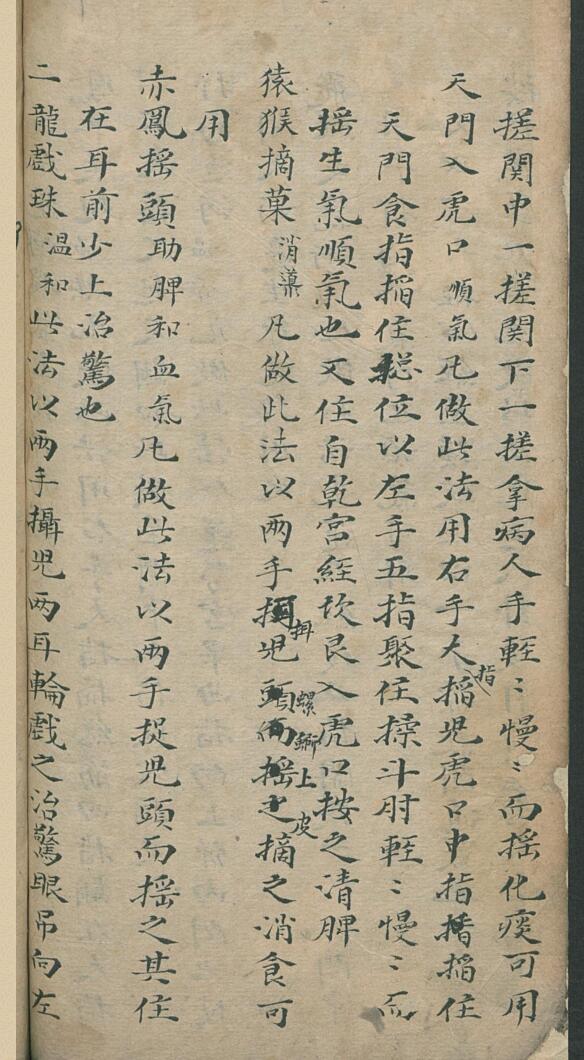 搓関中一搓関下一搓拿病人手軽〻慢〻而揺化痰可用
天門入虎口順氣凡做此法用右手大指搯児虎口中指搯住
天門食指搯住總位以左手五指聚住揉斗肘軽〻慢〻而
揺生氣順氣也又住自乾宮經坎艮入虎口按之清脾
猿猴摘菓消藥凡做此法以両手抲児螺螄上皮摘之消食可
用
赤鳳揺頭助脾和血氣凡做此法以両手捉児頭而揺之其住
在耳前少上治驚也
二龍戯珠温和此法以両手攝児両耳輪戯之治驚眼吊向左